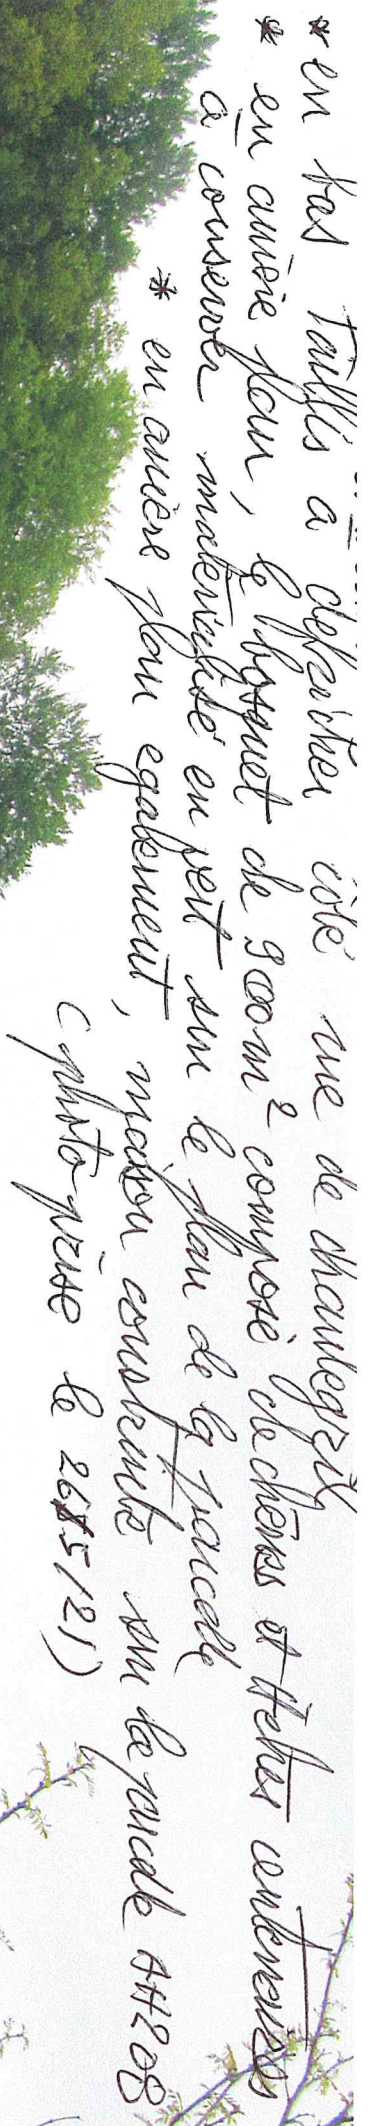 * en bas taillis à defricher côté rue de chantegril
* en arrière plan, le bosquet de 900m² composé de chênes et hêtres centenaires
à conserver materialisé en vert sur le plan de la parcelle
* en arrière plan egalement, maison construite sur la parcelle AH208
(photo prise le 26/5/21)